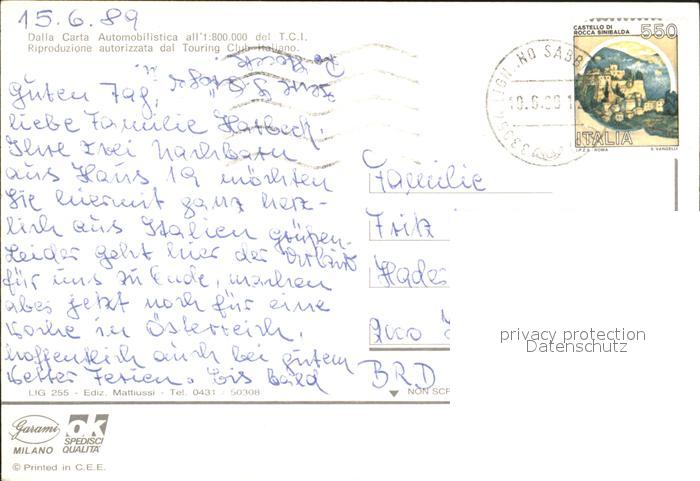 15.6.89
Dalla Carta Automobilistica all'1:800.000 del T.C.I.
Riproduzione autorizzata dal Touring Club Italiano.
Guten Tag,
liebe Familie
Ihre zwei Nachbarn
aus Haus 19 möchten
Sie hiermit ganz herz-
lich aus Italien grüßen.
Leider geht hier der Urlaub
für uns zu Ende, machen
aber jetzt noch für eine
Woche in Österreich,
hoffentlich auch bei gutem
Wetter Ferien. Bis Bald
LIG 255 - Ediz. Mattiussi - Tel. 0431 / 50308
CASTELLO DI
ROCCA SINIBALDA
550
ITALIA
I.P.Z.S. ROMA
E. VANGELLI
LIGNANO SABB
Familie
Fritz
BRD
NON SCR
privacy protection
Datenschutz
Garami
MILANO
ok
SPEDISCI
QUALITÀ
© Printed in C.E.E.